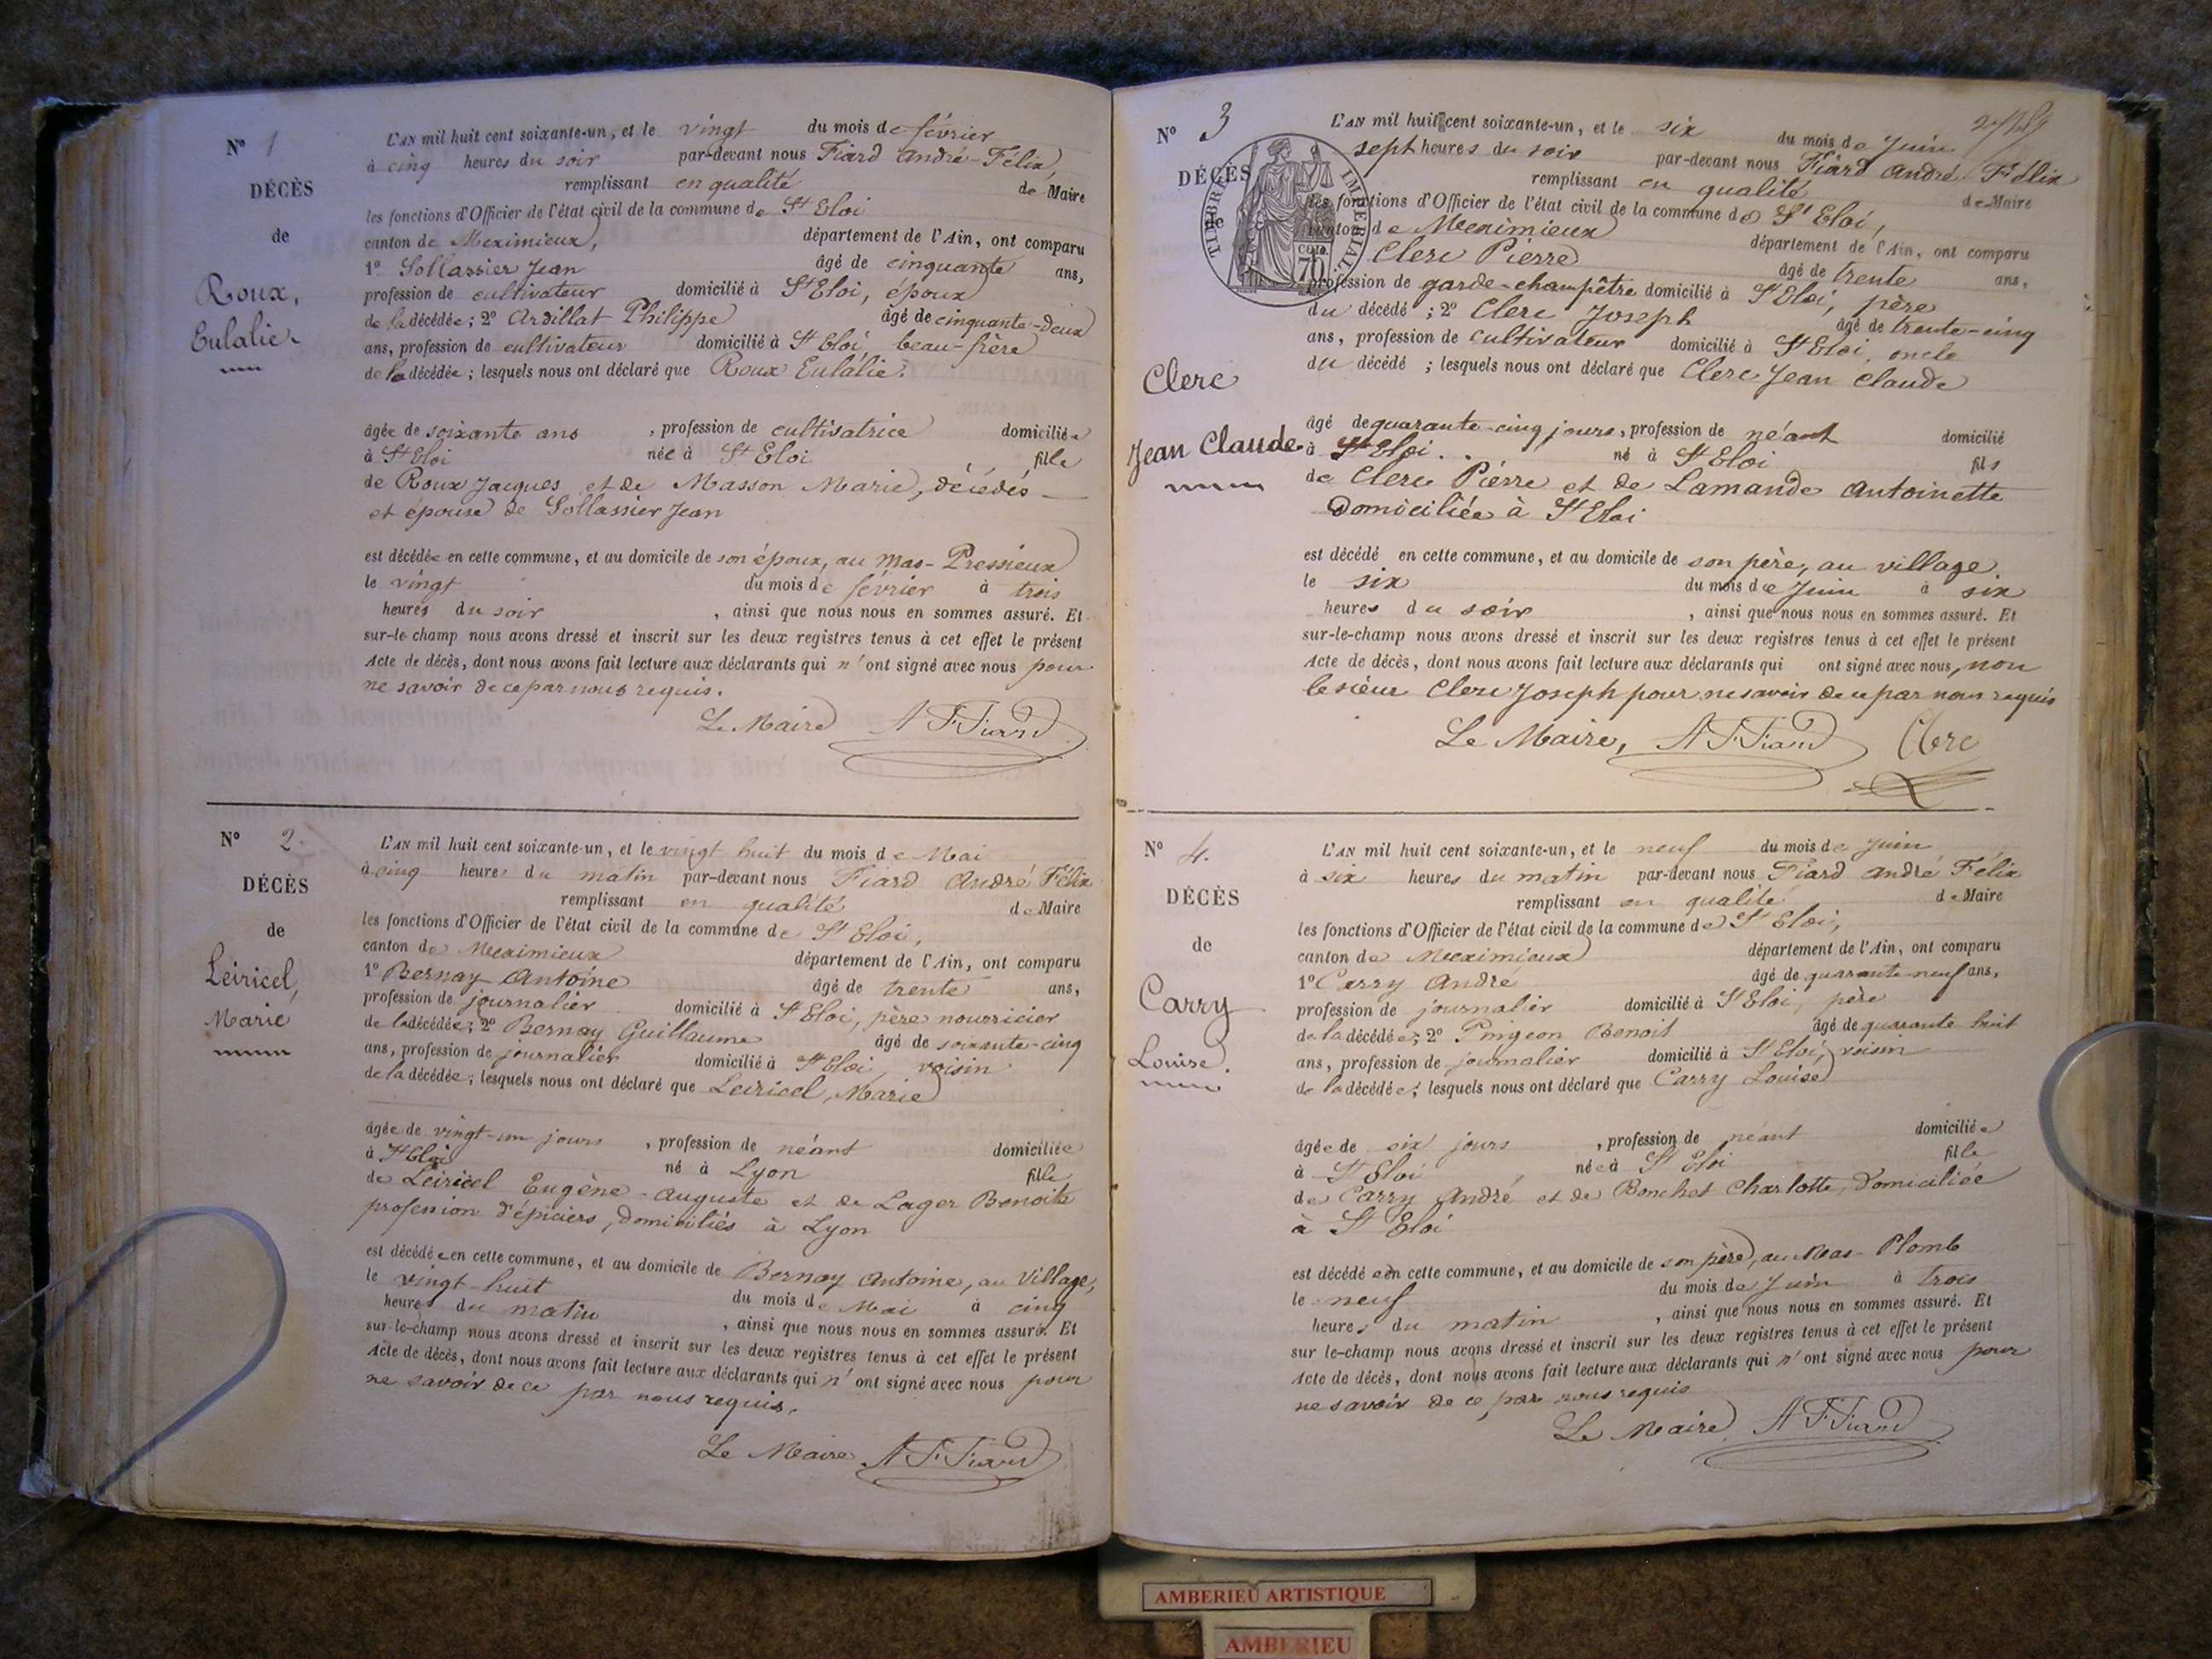 N° 1
DÉCÈS
de
Roux,
Eulalie
L'AN mil huit cent soixante-un, et le vingt du mois de février
à cinq heures du soir par-devant nous Fiard André-Félix,
remplissant en qualité de Maire
les fonctions d'Officier de l'état civil de la commune de St Eloi
canton de Meximieux, département de l'Ain, ont comparu
1° Sollassier Jean âgé de cinquante ans,
profession de cultivateur domicilié à St Eloi, époux
de la décédée ; 2° Ardillat Philippe âgé de cinquante-deux
ans, profession de cultivateur domicilié à St Eloi beau-frère
de la décédée ; lesquels nous ont déclaré que Roux Eulalie.
âgée de soixante ans , profession de cultivatrice domiciliée
à St Eloi née à St Eloi fille
de Roux Jacques et de Masson Marie, décédés
et épouse de Sollassier Jean
est décédée en cette commune, et au domicile de son époux, au Mas-Pressieux
le vingt du mois de février à trois
heures du soir , ainsi que nous nous en sommes assuré. Et
sur-le-champ nous avons dressé et inscrit sur les deux registres tenus à cet effet le présent
Acte de décès, dont nous avons fait lecture aux déclarants qui n'ont signé avec nous pour
ne savoir de ce par nous requis.
Le Maire A F Fiard
N° 2
DÉCÈS
de
Leiricel,
Marie
L'AN mil huit cent soixante-un, et le vingt huit du mois de Mai
à cinq heures du matin par-devant nous Fiard André Félix
remplissant en qualité de Maire
les fonctions d'Officier de l'état civil de la commune de St Eloi,
canton de Meximieux département de l'Ain, ont comparu
1° Bernay Antoine âgé de trente ans,
profession de journalier domicilié à St Eloi, père nourricier
de la décédée ; 2° Bernay Guillaume âgé de soixante-cinq
ans, profession de journalier domicilié à St Eloi voisin
de la décédée ; lesquels nous ont déclaré que Leiricel, Marie
âgée de vingt-un jours , profession de néant domiciliée
à St Eloi né à Lyon fille
de Leiricel Eugène-Auguste et de Lager Benoite
profession d'épiciers, domiciliés à Lyon
est décédée en cette commune, et au domicile de Bernay Antoine, au Village,
le vingt huit du mois de Mai à cinq
heures du matin , ainsi que nous nous en sommes assuré. Et
sur-le-champ nous avons dressé et inscrit sur les deux registres tenus à cet effet le présent
Acte de décès, dont nous avons fait lecture aux déclarants qui n'ont signé avec nous pour
ne savoir de ce par nous requis.
Le Maire A F Fiard
N° 3
DÉCÈS
de
Clerc
Jean Claude
TIMBRE IMPÉRIAL
70
L'AN mil huit cent soixante-un, et le six du mois de Juin
sept heures du soir par-devant nous Fiard André Félix
remplissant en qualité de Maire
les fonctions d'Officier de l'état civil de la commune de St Eloi,
canton de Meximieux département de l'Ain, ont comparu
Clerc Pierre âgé de trente ans,
profession de garde-champêtre domicilié à St Eloi, père
du décédé ; 2° Clerc Joseph âgé de trente-cinq
ans, profession de cultivateur domicilié à St Eloi, oncle
du décédé ; lesquels nous ont déclaré que Clerc Jean Claude
âgé de quarante-cinq jours, profession de néant domicilié
à St Eloi né à St Eloi fils
de Clerc Pierre et de Lamande Antoinette
domiciliée à St Eloi
est décédé en cette commune, et au domicile de son père, au village
le six du mois de Juin à six
heures du soir , ainsi que nous nous en sommes assuré. Et
sur-le-champ nous avons dressé et inscrit sur les deux registres tenus à cet effet le présent
Acte de décès, dont nous avons fait lecture aux déclarants qui ont signé avec nous, non
le sieur Clerc Joseph pour ne savoir de ce par nous requis
Le Maire, A F Fiard Clerc
N° 4.
DÉCÈS
de
Carry
Louise.
L'AN mil huit cent soixante-un, et le neuf du mois de Juin
à six heures du matin par-devant nous Fiard André Félix
remplissant en qualité de Maire
les fonctions d'Officier de l'état civil de la commune de St Eloi,
canton de Meximieux département de l'Ain, ont comparu
1° Carry André âgé de quarante-neuf ans,
profession de journalier domicilié à St Eloi, père
de la décédée ; 2° Pingeon Benoit âgé de quarante huit
ans, profession de journalier domicilié à St Eloi, voisin
de la décédée ; lesquels nous ont déclaré que Carry Louise
âgée de six jours , profession de néant domiciliée
à St Eloi née à St Eloi fille
de Carry André et de Bonchet Charlotte, domiciliée
à St Eloi
est décédée en cette commune, et au domicile de son père, au Mas-Plomb
le neuf du mois de Juin à trois
heures du matin , ainsi que nous nous en sommes assuré. Et
sur le-champ nous avons dressé et inscrit sur les deux registres tenus à cet effet le présent
Acte de décès, dont nous avons fait lecture aux déclarants qui n'ont signé avec nous pour
ne savoir de ce par nous requis
Le Maire A F Fiard
AMBERIEU ARTISTIQUE
AMBERIEU